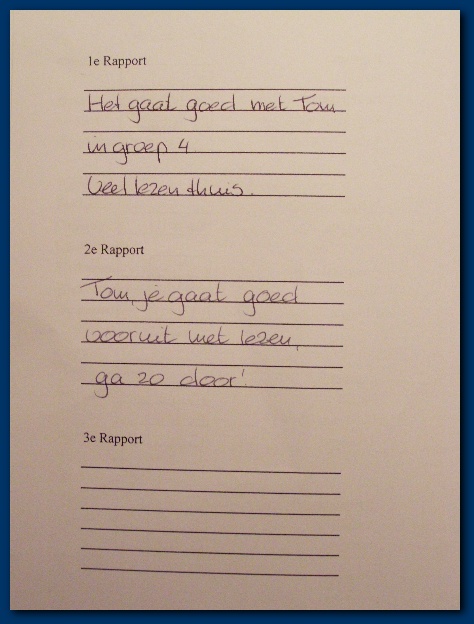 1e Rapport
Het gaat goed met Tom
in groep 4
Veel lezen thuis.
2e Rapport
Tom, je gaat goed
vooruit met lezen,
ga zo door!
3e Rapport